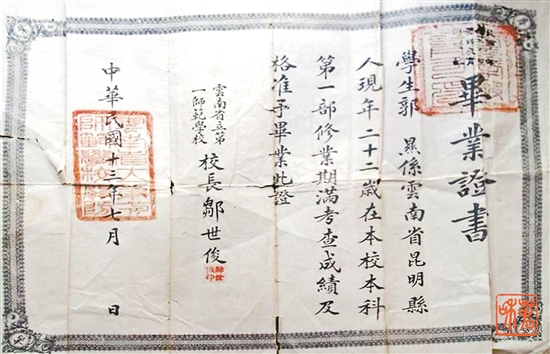 畢業證書
學生郭昺係雲南省昆明縣
人現年二十二歲在本校本科
第一部修業期滿考查成績及
格准予畢業此證
雲南省立第
一師範學校
校長鄒世俊
中華民國十三年七月 日